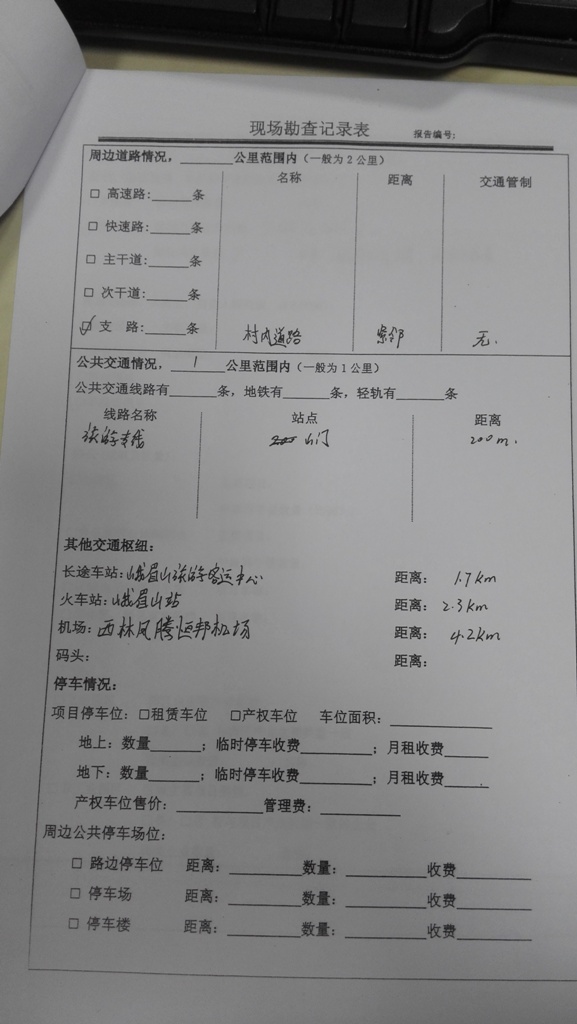 现场勘查记录表 报告编号:
周边道路情况，______公里范围内（一般为2公里）
名称 距离 交通管制
□ 高速路:_____条
□ 快速路:_____条
□ 主干道:_____条
□ 次干道:_____条
☑ 支 路:_____条 村内道路 紧邻 无.
公共交通情况，__1__公里范围内（一般为1公里）
公共交通线路有______条，地铁有______条，轻轨有______条
线路名称 站点 距离
旅游专线 山门 200m.
其他交通枢纽:
长途车站:峨眉山旅游客运中心 距离: 1.7km
火车站:峨眉山站 距离: 2.3km
机场:西林凤腾恒邦机场 距离: 4.2km
码头: 距离:
停车情况:
项目停车位: □租赁车位 □产权车位 车位面积: __________
地上: 数量______; 临时停车收费________; 月租收费_____
地下: 数量______; 临时停车收费________; 月租收费_____.
产权车位售价: _________管理费: ________
周边公共停车场位:
□ 路边停车位 距离: ________数量: ________收费________
□ 停车场 距离: ________数量: ________收费________
□ 停车楼 距离: ________数量: ________收费________